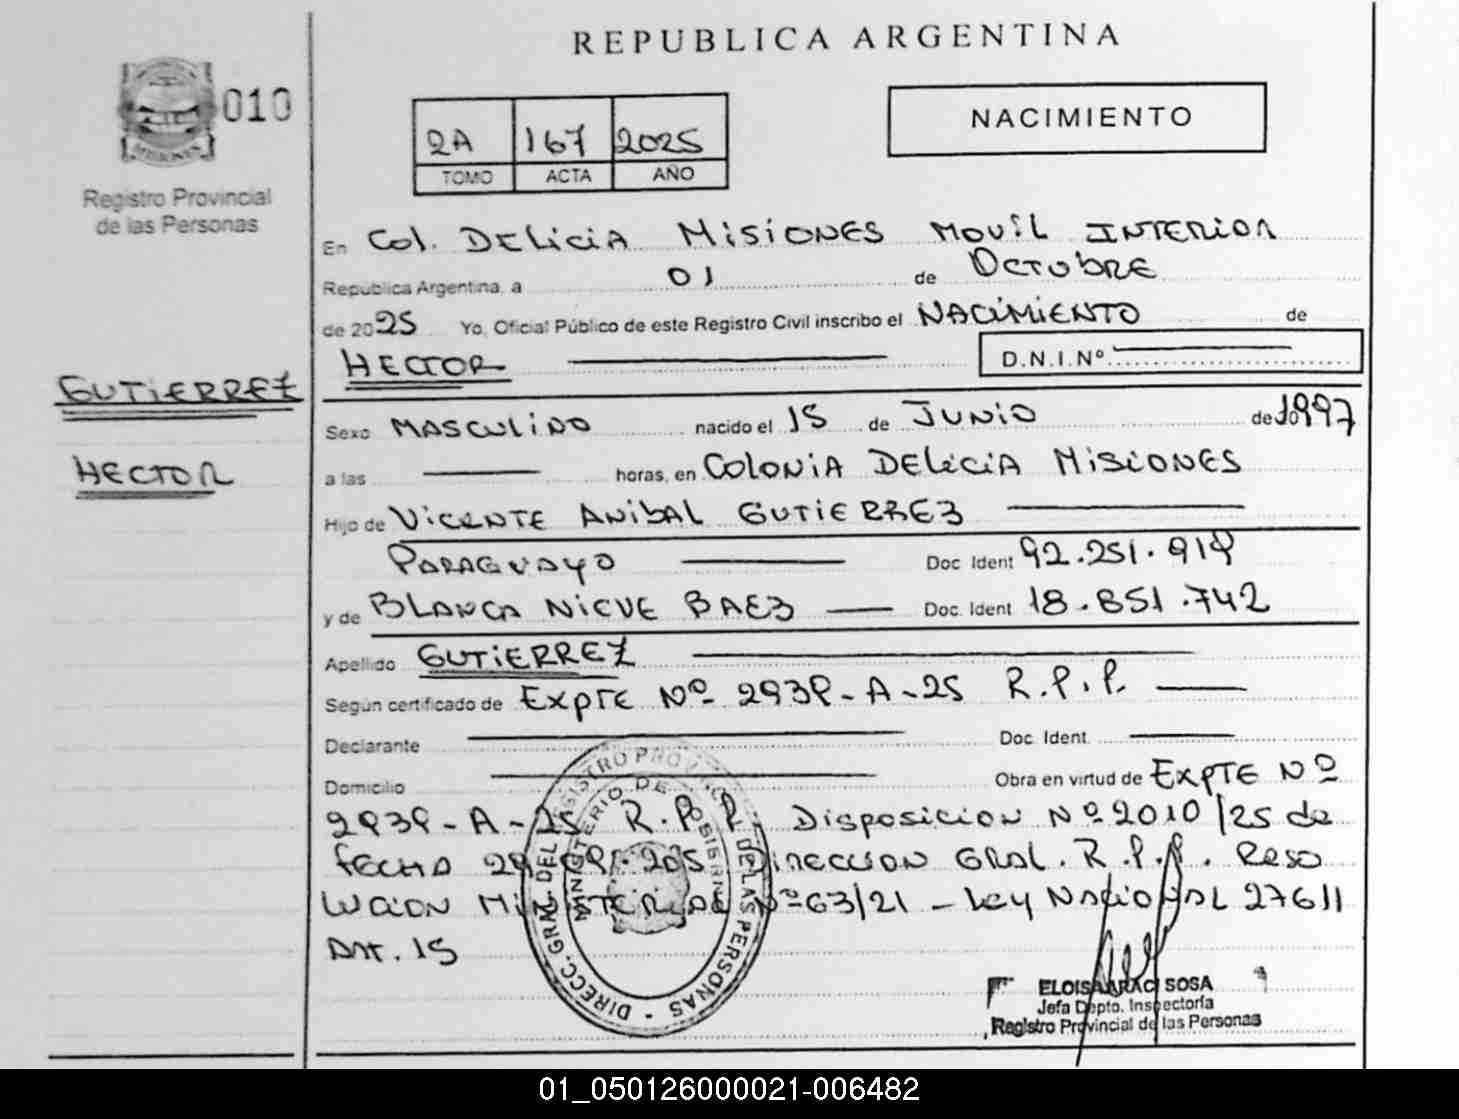 REPUBLICA ARGENTINA
010
MISIONES
Registro Provincial
de las Personas
2A 167 2025
TOMO ACTA AÑO
NACIMIENTO
En Col. DELICIA MISIONES MOVIL INTERIOR
Republica Argentina, a 01 de OCTUBRE
de 2025 Yo, Oficial Público de este Registro Civil inscribo el NACIMIENTO de
HECTOR D.N.I.Nº
GUTIERREZ
HECTOR
Sexo MASCULINO nacido el 15 de JUNIO de 1997
a las horas, en COLONIA DELICIA MISIONES
Hijo de VICENTE ANIBAL GUTIERREZ
PARAGUAYO Doc Ident 92.251.919
y de BLANCA NIEVE BAEZ Doc. Ident 18.851.742
Apellido GUTIERREZ
Según certificado de EXPTE Nº 2939-A-25 R.P.P.
Declarante Doc. Ident.
Domicilio Obra en virtud de EXPTE Nº
2939-A-25 R.P.P. Disposicion Nº 2010/25 de
FECHA DIRECCION GRAL. R.P.P. Reso
LUCION MINISTERIAL Nº 63/21 - Ley NACIONAL 27611
Art. 15
DIRECC. GRAL. DEL REGISTRO PROVINCIAL DE LAS PERSONAS
MINISTERIO DE
ELOISA ARACI SOSA
Jefa Dpto. Inspectoría
Registro Provincial de las Personas
01_050126000021-006482